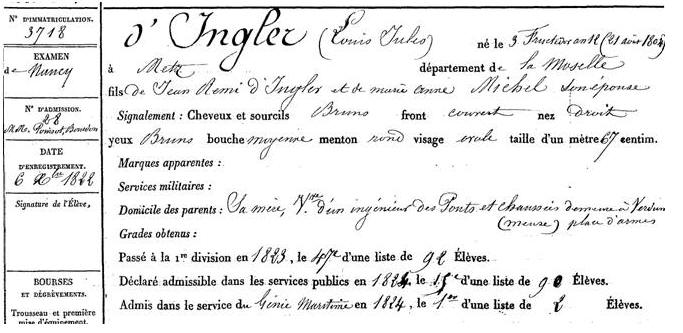 N° D'IMMATRICULATION.
3718
EXAMEN
de Nancy
N° D'ADMISSION.
28
MM. Poinsot, Bourdon
DATE
D'ENREGISTREMENT.
6 Xbre 1822
Signature de l'Élève,
BOURSES
ET DÉGRÈVEMENTS.
Trousseau et première
mise d'équipement.
d'Ingler (Louis Jules) né le 3 Fructidor an 12 (21 août 1804)
à Metz département de la Moselle
fils de Jean Remi d'Ingler et de marie anne Michel son épouse
Signalement : Cheveux et sourcils Bruns front couvert nez Droit
yeux Bruns bouche moyenne menton rond visage ovale taille d'un mètre 67 centim.
Marques apparentes :
Services militaires :
Domicile des parents : Sa mère, Vve d'un ingénieur des Ponts et chaussées demeure à Verdun
(meuse) place d'armes
Grades obtenus :
Passé à la 1re division en 1823, le 47e d'une liste de 92 Élèves.
Déclaré admissible dans les services publics en 1824, le 15e d'une liste de 90 Élèves.
Admis dans le service du Génie Maritime en 1824, le 1er d'une liste de 2 Élèves.